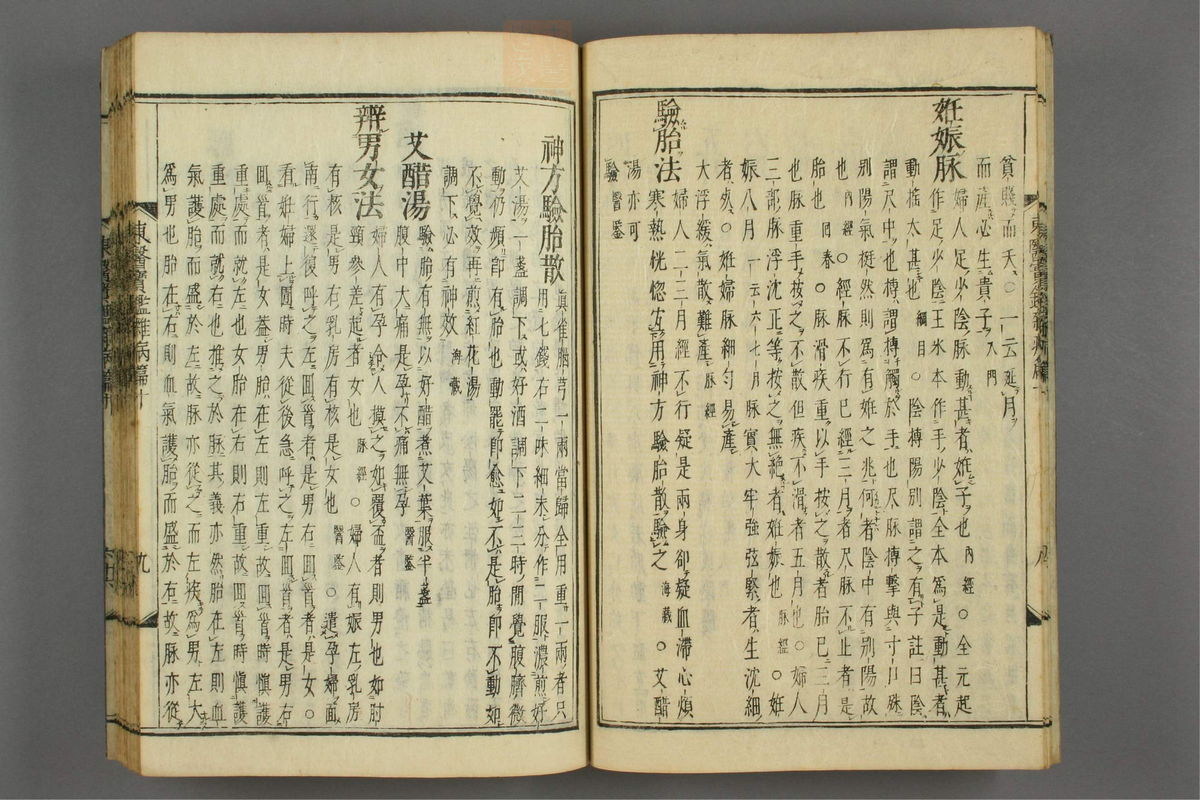 貧賤而夭○一云延月
而產必生貴子入門
妊娠脉婦人足少陰脉動甚者妊子也內經○全元起
作足少陰王氷本作手少陰全本爲是動甚者
動搖太甚也綱目○陰搏陽別謂之有子註曰陰
謂尺中也搏謂搏觸於手也尺脉搏擊與寸口殊
別陽氣挺然則爲有妊之兆何者陰中有別陽故
也內經○經不行已經三月者尺脉不止者是
胎也回春○脉滑疾重以手按之散者胎已三月
也脉重手按之不散但疾不滑者五月也○婦人
三部脉浮沈正等按之無絶者妊娠也脉經○妊
娠八月一云六七月脉實大牢強弦緊者生沈細
者死○妊婦脉細勻易產
大浮緩氣散難產脉經
驗胎法婦人二三月經不行疑是兩身卻疑血滯心煩
寒熱恍惚宜用神方驗胎散驗之海藏○艾醋
湯亦可
驗醫鑑
神方驗胎散眞雀腦芎一兩當歸全用重一兩者只
用七錢右二味細末分作二服濃煎好
艾湯一盞調下或好酒調下二三時間覺腹臍微
動仍頻卽有胎也動罷卽愈如不是胎卽不動如
不覺效再煎紅花湯
調下必有神效海藏
艾醋湯驗胎有無以好醋煮艾葉服半盞
腹中大痛是孕不痛無孕醫鑑
辨男女法婦人有孕令人摸之如覆盃者則男也如肘
頸參差起者女也脉經○婦人有娠左乳房
有核是男右乳房有核是女也醫鑑○遣孕婦面
南行還復呼之左囬首者是男右囬首者是女○
看妊婦上圊時夫從後急呼之左囬首者是男右
囬首者是女蓋男胎在左則左重故囬首時愼護
重處而就左也女胎在右則右重故囬首時愼護
重處而就右也推之於脉其義亦然胎在左則血
氣護胎而盛於左故脉亦從之而左疾爲男左大
爲男也胎在右則血氣護胎而盛於右故脉亦從
東醫寶鑑雜病篇十
九